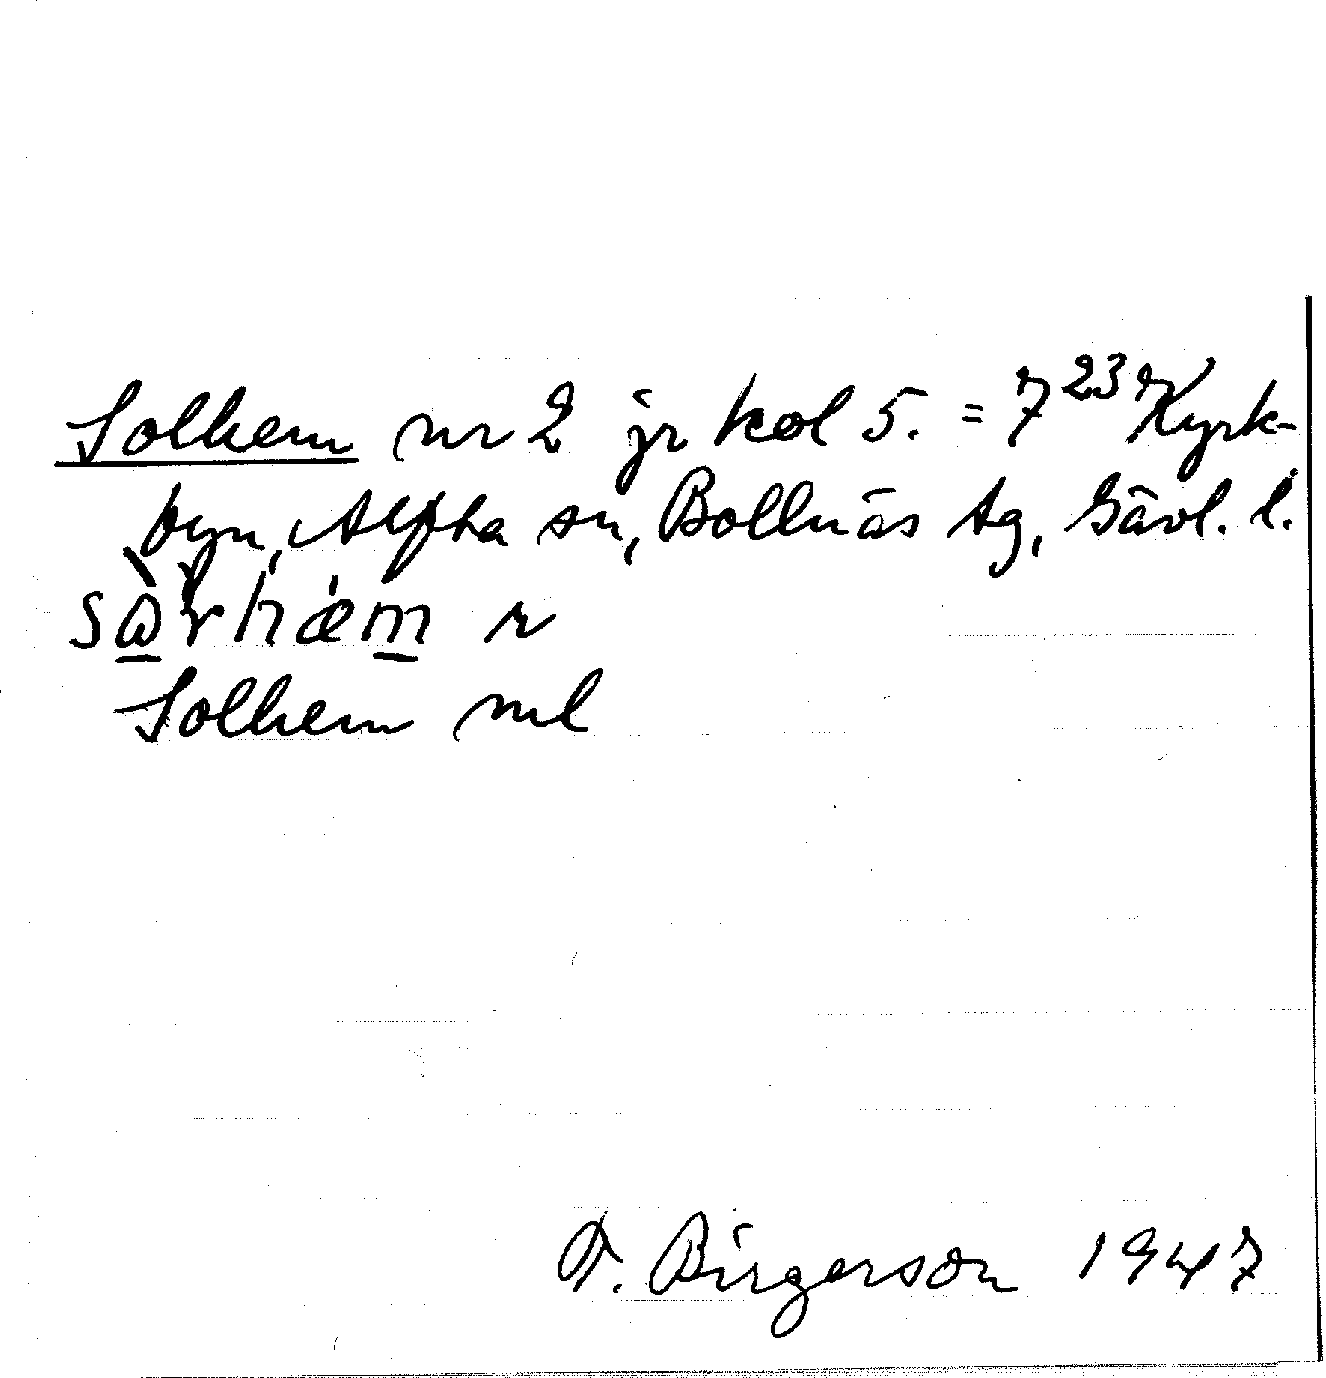 Solhem nr 2 jr kol 5. = 7²³ Kyrk-
byn, Alfta sn, Bollnäs tg, Gävl. l.
r
Solhem ml
F. Birgerson 1947